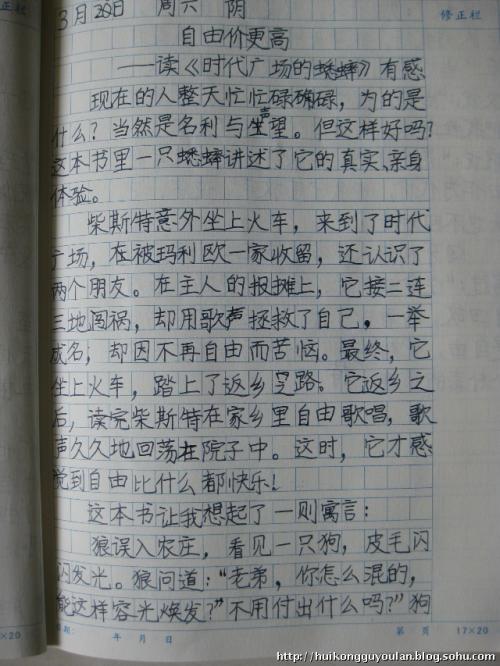 修正栏
3月28日 周六 阴
自由价更高
——读《时代广场的蟋蟀》有感
现在的人整天忙忙碌碌碌，为的是
什么？当然是名利与声望。但这样好吗？
这本书里一只蟋蟀讲述了它的真实、亲身
体验。
柴斯特意外坐上火车，来到了时代
广场，在被玛利欧一家收留，还认识了
两个朋友。在主人的报摊上，它接二连
三地闯祸，却用歌声拯救了自己，一举
成名；却因不再自由而苦恼。最终，它
坐上火车，踏上了返乡之路。它返乡之
后，读完柴斯特在家乡里自由歌唱，歌
声久久地回荡在院子中。这时，它才感
觉到自由比什么都快乐！
这本书让我想起了一则寓言：
狼误入农庄，看见一只狗，皮毛闪
闪发光。狼问道：“老弟，你怎么混的，
能这样容光焕发？”不用付出什么吗？”狗
×20 年 月 日 第 页 17×20
http://huikongguyoulan.blog.sohu.com